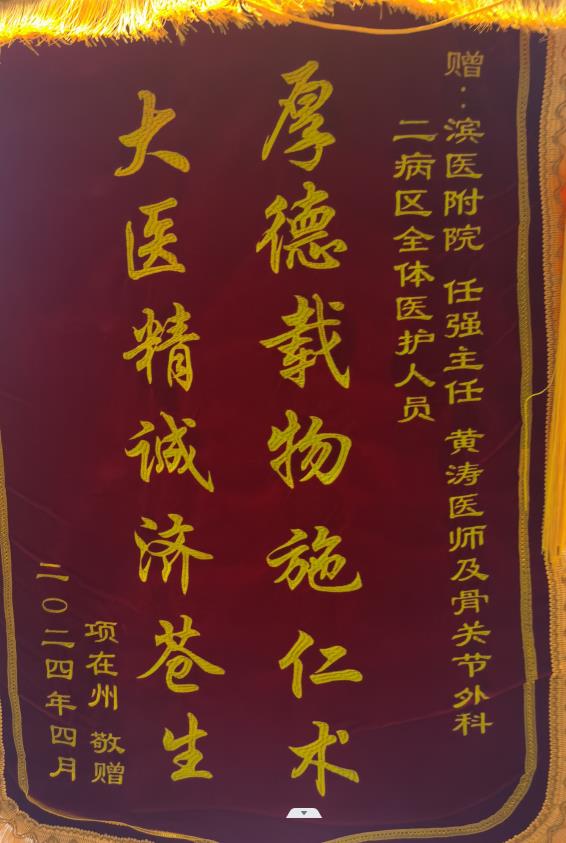 赠：滨医附院 任强主任 黄涛医师及骨关节外科
二病区全体医护人员
厚德载物施仁术
大医精诚济苍生
项在州 敬赠
二〇二四年四月